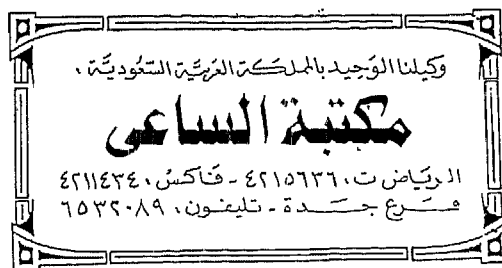 وكيلنا الوَحِيد بالمملكة العَربيَّة السَّعُوديَّة ،
مكتبة الساعى
الريَاض ت ، ٤٢١٥٦٣٦ - فَاكسُ ، ٤٢١١٤٣٤
فرع جدة - تليفون ، ٦٥٣٢٠٨٩